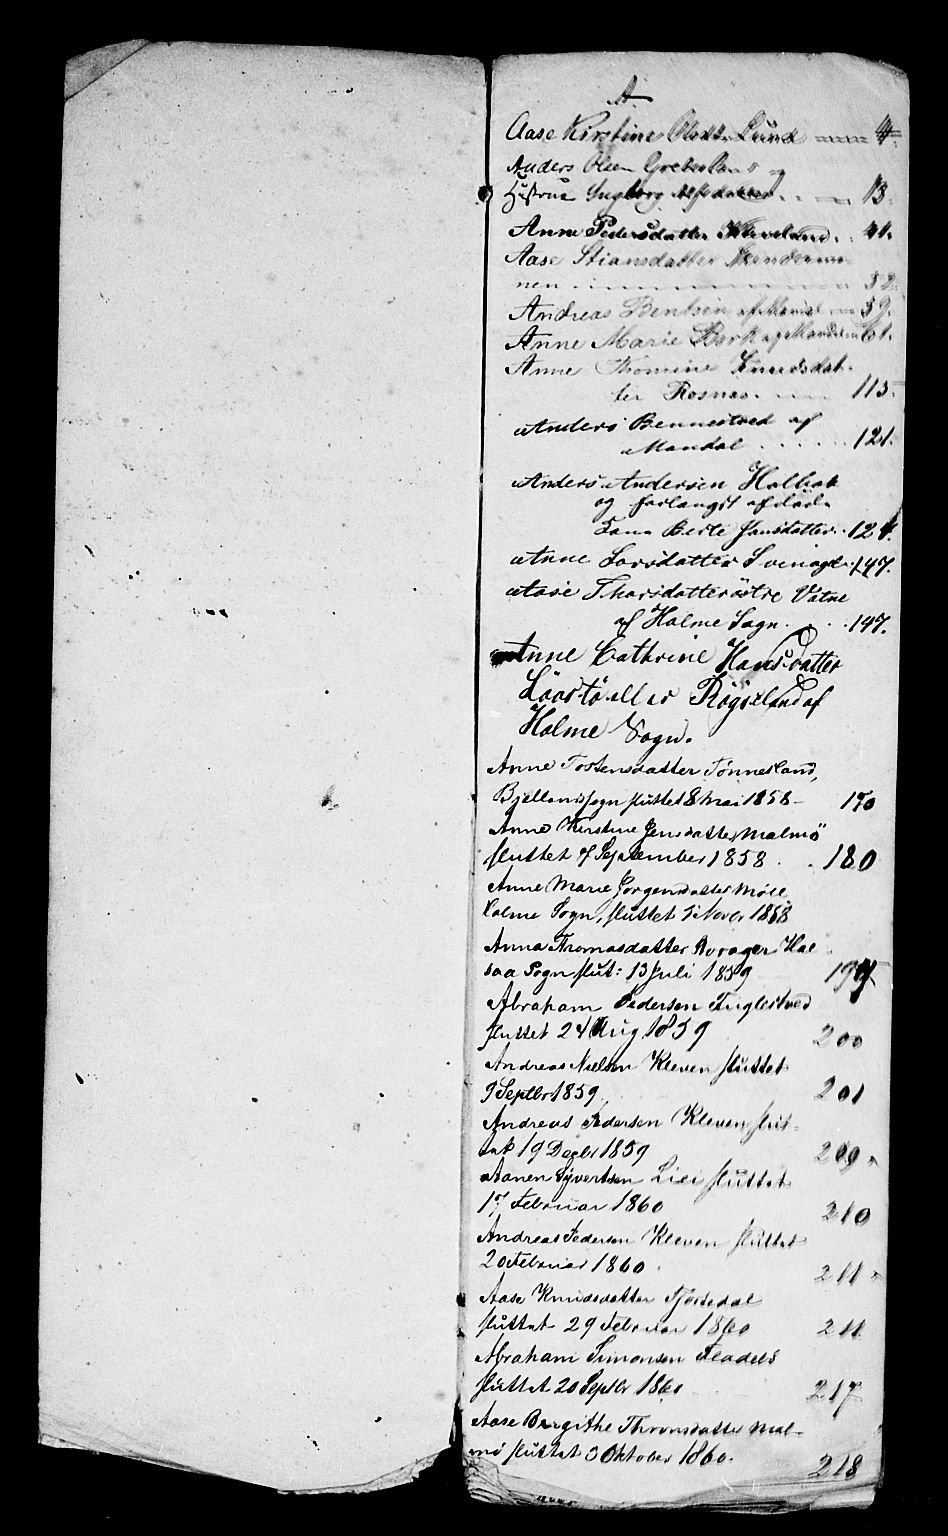 A
Aase Kirstine Lund 4
Anders Olsen
Hustrue Ingborg 13.
Anne Pedersdatter Kleveland. 41.
Aase Stiansdatter
nen 52.
Andreas Bentsen af Mandal 59.
Anne Marie Bork af Mandal 61.
Anne Thomine Knudsdat-
ter Rosnas. 115.
Anders Bennestved af
Mandal 121.
Anders Andersen Holbæk
og forlængst afdöde
Berte Jansdatter 124.
Anne Larsdatter 147.
Aase Thorsdatter östre Vatne
af Holme Sogn. 147.
Anne Cathrine Hansdatter
eller Rögseland af
Holme Sogn.
Anne Tostensdatter Tønnesland,
Bjellandsogn sluttet 8 Mai 1858 170
Anne Kirstine Jensdatter Malmö
sluttet 7 September 1858. 180
Anne Marie Jörgensdatter
Holme Sogn, sluttet 5 Novbr 1858
Anna Thomasdatter Hal-
saa Sogn slut: 13 Juli 1859
Abraham Pedersen Fuglestved
sluttet 24 Aug 1859 200
Andreas Nielsen Kleven sluttet
9 Septbr 1859 201
Andreas Pedersen Kleven slut-
tet 19 Decbr 1859 209
Aanen Syvertsen sluttet
17 Februar 1860 210
Andreas Pedersen Kleven sluttet
20 Februar 1860. 211
Aase Knudsdatter
sluttet 29 Februar 1860 211
Abraham Simonsen
sluttet 20 Septbr 1860 217
Aase Bergithe Thronsdatter Mal-
mö sluttet 3 Oktober 1860. 218